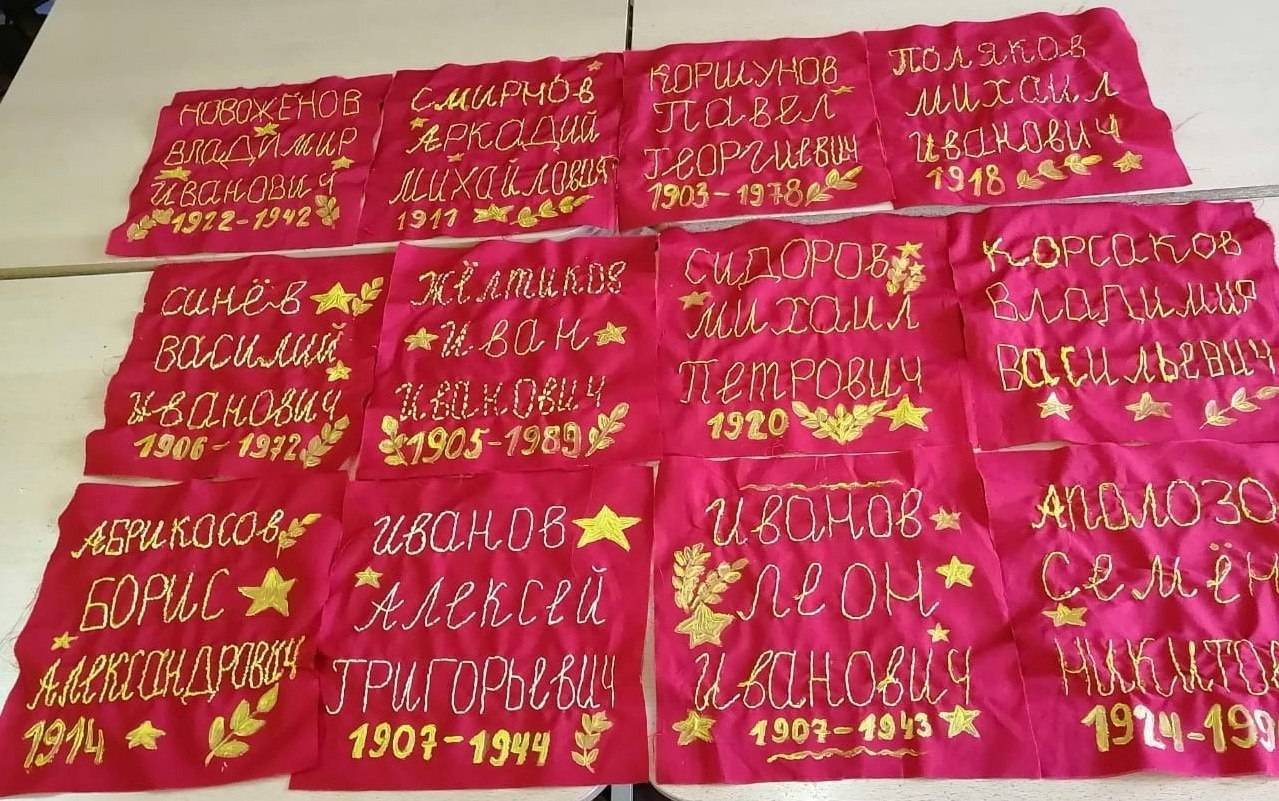 НОВОЖЁНОВ
ВЛАДИМИР
ИВАНОВИЧ
1922-1942
СМИРНОВ
АРКАДИЙ
МИХАЙЛОВИЧ
1911
КОРШУНОВ
ПАВЕЛ
ГЕОРГИЕВИЧ
1903-1978
ПОЛЯКОВ
МИХАИЛ
ИВАНОВИЧ
1918
СИНЁВ
ВАСИЛИЙ
ИВАНОВИЧ
1906-1972
ЖЁЛТИКОВ
ИВАН
ИВАНОВИЧ
1905-1989
СИДОРОВ
МИХАИЛ
ПЕТРОВИЧ
1920
КОРСАКОВ
ВЛАДИМИР
ВАСИЛЬЕВИЧ
АБРИКОСОВ
БОРИС
АЛЕКСАНДРОВИЧ
1914
ИВАНОВ
АЛЕКСЕЙ
ГРИГОРЬЕВИЧ
1907-1944
ИВАНОВ
ЛЕОН
ИВАНОВИЧ
1907-1943
АПОЛОЗО
СЕМЁН
НИКИТОВ
1924-199